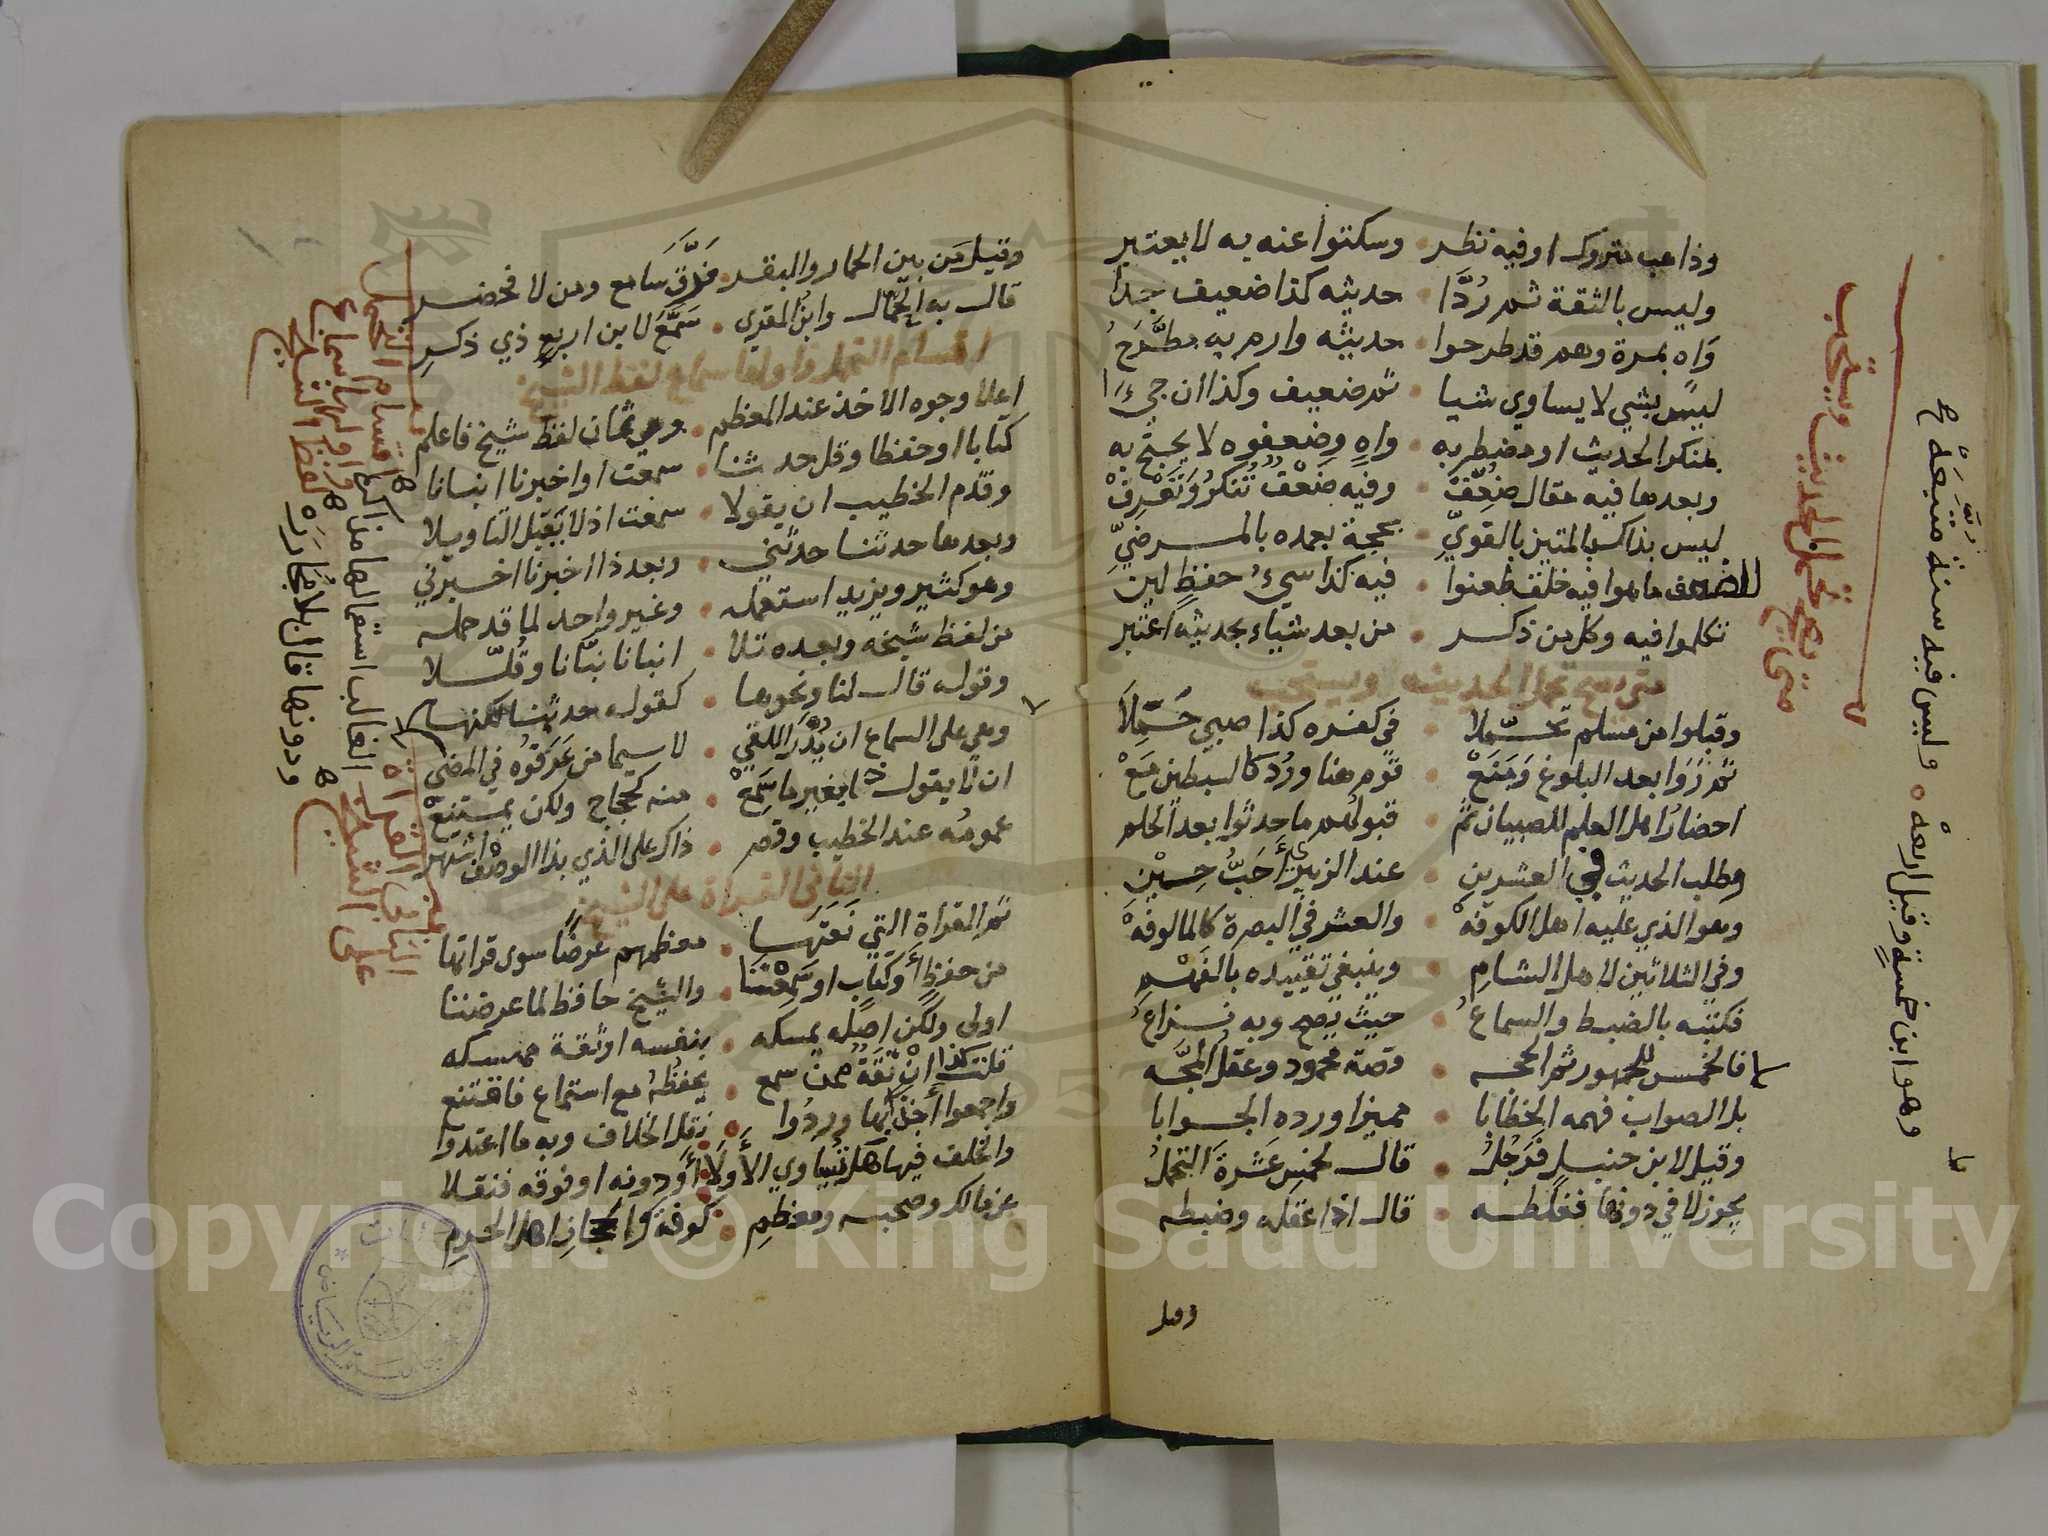 وذاهب متروك اوفيه نظر . وسكتوا عنه به لا يعتبر
وليس بالثقة ثم رُدَّا . حديثه كذا ضعيف جدا
وَاه بمرة وهم قد طرحوا . حديثه وارم به مطَّرَحُ
ليس بشي لا يساوي شيا . ثم ضعيف وكذا ان جيءَا
بمنكر الحديث او مضطربه . واهٍ وضعفوه لا يحتج به
وبعدها فيه مقال ضُعِّفْ . وفيه ضَعْفٌ تُنكِرُ وتَعْرِفْ
ليس بذاك بالمتين بالقويِّ . بحجة بعمده بالمرضيِّ
للضعف ما هوا فيه خلف طعنوا . فيه كذا سيءُ حفظٍ لين
تكلموا فيه وكل من ذكر . من بعد شياء بحديثه اعتبر
متى يصح تحمل الحديث ويستحب
وقبلوا من مسلم تحمّلا . في كفره كذا صبي حُمِّلَا
ثم رَوَا بعد البلوغ وَمَنَعْ . قوم هنا ورُدّ كالسبطين مَعْ
احضارُ اهل العلم للصبيان ثم . قبولُهم ما حدثوا بعد الحلم
وطلب الحديث في العشرين . عند الزبيري أَحَبُّ حِيْنِ
وهو الذي عليه اهل الكوفهْ . والعشر في البصرة كالمالوفهْ
وفي الثلاثين لاهل الشامِ . وينبغي تقييده بالفَهْمِ
فكتبه بالضبط والسماعُ . حيث يصح وبه نزاعُ
فالخمس للجمهور ثم الحجه . قصة محمود وعقلُ المجَّه
بل الصواب فهمه الخطابا . مميزا ورده الجوابا
وقيل لابن حنبلٍ فَرَجُلُ . قال لخمسِ عَشْرةَ التحملُ
يجوز لا في دونها فغلطه . قال اذا عقله وضبطه
وقيل
متى يصح تحمل الحديث ويستحب
وهو ابن خمسةٍ وقيل اربعهْ . وليس فيه سنة متَّبَعَهْ
وقيل مَن بين الحمار والبقر . فَرَّقَ سَامع ومن لا فحضر
قال به الحَمّال وابنُ المقري . سَمَّعَ لابن اربعٍ ذي ذكرِ
اقسام التحمل واولها سماع لفظ الشيخ
اعلا وجوه الاخذ عند المعظم . وهي ثمان لفظ شيخ فاعلم
كتابا او حفظا وقل حدثنا . سمعت او اخبرنا انبانا
وقدَّم الخطيب ان يقولا . سمعت اذ لا يقبَل التاويلا
وبعدها حدثنا حدثني . وبعد ذا اخبرنا اخبرني
وهو كثير ويزيد استعمله . وغير واحد لما قد حمله
من لفظ شيخه وبعده تلا . انبانا نبّانا وقُلّلا
وقوله قال لنا ونحوها . كقوله حدثنا لكنها
وهي على السماع ان يُدْرَ اللقي . لا سيما من عَرَفوُه في المضى
ان لا يقول ذا بغير ما سَمِعْ . منه كحجاج ولكن يمتنِعْ
عمومُه عند الخطيب وقصر . ذاك على الذي بذا الوصف اشتهر
الثاني القراة على الشيخ
ثم القراة التي نَعَتَهَا . معظمهم عرضًا سوى قراتها
من حفظٍ أوكتابٍ او سَمِعْتَنا . والشيخ حافظ لما عرضتنا
اولى ولكن اصله يمسكه . بنفسه او ثقة ممسكه
قلت كذا انْ ثقةٌ ممن سمع . يحفظُهُ مع استماع فاقتنع
واجمعوا أخذا بها وردُوا . نقل الخلاف وبه ما اعتدوا
والخلف فيها هل تُساوي الأَولَا . أودونه او فوقه فنقلا
عن مالك وصحبه ومعظمِ . كوفة والحجازِ اهل الحرمِ
اقسام التحمل
واولها سماع
لفظ الشيخ
ودونها قال بلا مُجَارَرَهْ
الغالب استعمالها مذاكرهْ
الثاني القراة
على الشيخ